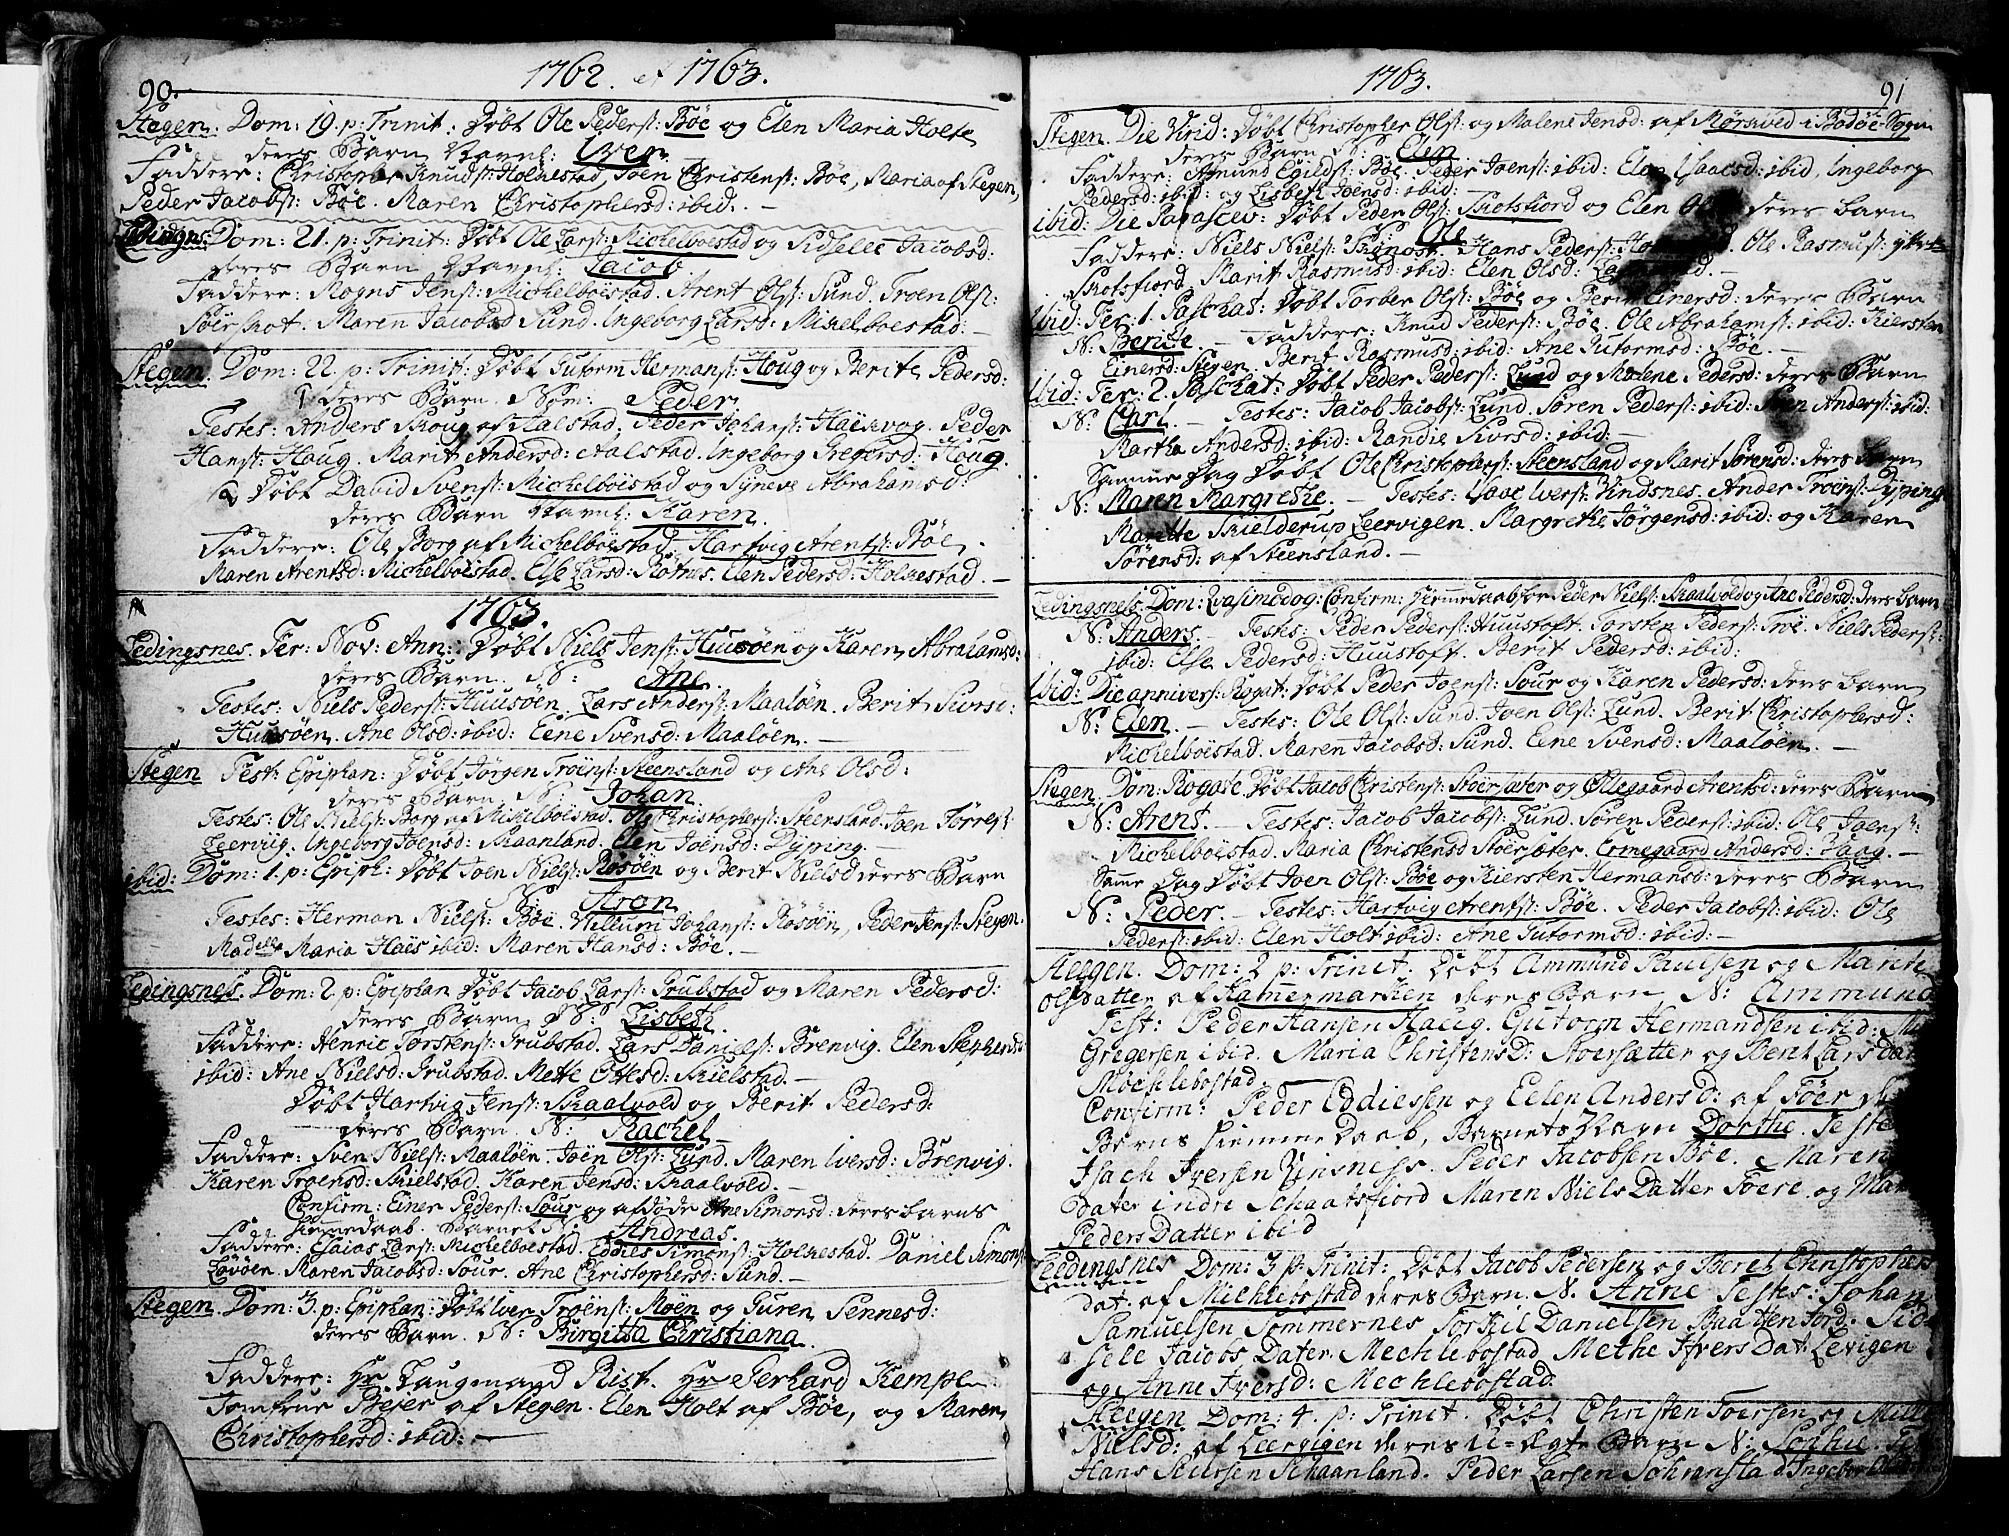 90.
1762. et 1763.
Stegen. Dom: 19. p: Trinit: Døbt Ole Peders: Bøe og Elen Maria Holte
deres Barn Navnl: Iver
Faddere: Christopher Knuds: Holkestad, Joen Christens: Bøe, Maria af Stegen,
Peder Jacobs: Bøe. Maren Christophersd: ibid: —
Dom: 21. p: Trinit: Døbt Ole Lars: Michelboestad og Sidselee Jacobsd:
deres Barn Navnl: Jacob
Faddere: Rogns Jens: Michelboistad. Arent Ols: Sund. Troen Ols:
Søerskot: Maren Jacobsd Sund. Ingeborg Larsd: Mickelboestad: —
Stegen. Dom: 22. p: Trinit: Døbt Gutorm Hermans: Houg og Berite Pedersd:
deres Barn. Nom: Peder
Testes: Anders Skoug af Aalstad. Peder Johans: Haikvog. Peder
Hans: Houg. Marit Andersd: Aalstad. Ingeborg Gregersd: Houg.
Døbt David Svens: Michelboistad og Syneve Abrahamsd:
deres Barn Navnl: Karen
Faddere: Ole Borg af Michelboistad. Hartvig Arents: Bøe.
Maren Arentsd: Mickelboistad. Else Larsd: Rotnes. Elen Pedersd: Holkestad. —
1763.
Ledingsnes. Fer: Nov: Ann: Døbt Niels Jens: Huusøen og Karen Abrahamsd:
deres Barn. N: Ane
Testes: Niels Peders: Huusøen. Lars Anders: Maaløen. Berit Siversd:
Huusøen. Ane Olsd: ibid: Eene Svensd: Maaløen. —
Stegen Fest: Epiphan: Døbt Jørgen Troens: Steensland og Ane Olsd:
deres Barn N: Johan
Testes: Ole Niels: Borg af Mickelboistad. Ole Christophers: Steensland. Joen Torres:
Leerviig. Ingeborg Joensd: Skaanland. Elen Joensd: Dyping. —
ibid: Dom: 1. p: Epiph: Døbt Joen Niels: Røsøen og Berit Nielsd deres Barn
N: Aron
Testes: Herman Niels: Bøe. Willum Johans: Røsøen, Peder Jens: Stegen.
Madelle Maria Haiis ibid: Maren Hansd: Bøe. —
Ledingsnes. Dom: 2 p: Epiphan Døbt Jacob Lars: Grubstad og Maren Pedersd:
deres Barn N: Lisbeth
Faddere: Henric Torstens: Grubstad. Lars Daniels: Brenvig. Elen Stephensd:
ibid: Ane Nielsd: Grubstad. Mette Ottesd: Skielstad. —
Døbt Hartvig Jens: Skaalvold og Berit Pedersd:
deres Barn. N: Rachel
Faddere: Sven Niels: Maaløen. Joen Ols: Lund. Maren Iversd: Brenvig.
Karen Troensd: Skielstad. Karen Jensd: Skaalvold. —
Confirm: Einer Peders: Sour og afdøde Ane Simonsd: deres barns
hiemmedaab. Barnet N: Andreas.
Faddere: Esaias Lars: Michelboestad. Eddies Simons: Holkestad. Daniel Simons:
Løvøen. Maren Jacobsd: Sour. Ane Christophersd: Sund. —
Stegen. Dom: 3. p: Epiphan: Døbt Iver Troens: Moen og Guren Jennesd:
deres Barn. N: Birgitta Christiana
Faddere: Hr Laugmand Rist. Hr Gerhard Kempe
Jomfrue Beyer af Stegen. Elen Holt af Bøe, og Maren
Christophersd: ibid: —
1763.
91
Stegen. Die Virid: Døbt Christopher Ols: og Malene Jensd: af Mørkved i Bodøe-Sogn
deres Barn N: Elen
Faddere: Amund Egilds: Bøe. Peder Joens: ibid: Elen Isaacsd: ibid, Ingeborg
Pedersd: ibid: og Lisbeth Joensd: ibid:
ibid: Die Parascev: Døbt Peder Ols: Skotsfiord og Elen deres barn
N: Ole
Faddere: Niels Niels: Hans Peders: Ole Rasmus: yttre
Skotsfiord. Marit Rasmusd: ibid: Elen Olsd: —
Ibid: Fer: 1. Paschat: Døbt Torber Ols: Bøe og Berit Einersd: deres Barn
N: Berite. — Faddere: Knud Peders: Bøe. Ole Abrahams: ibid: Kiersten
Einersd: Stegen. Berit Rasmusd: ibid: Ane Gutormsd: Bøe. —
Ibid: Fer: 2. Paschat: Døbt Peder Peders: Lund og Malene Pedersd: deres Barn
N: Carl. — Testes: Jacob Jacobs: Lund. Søren Peders: ibid: Sven Anders: ibid:
Martha Andersd: ibid: Randie Siversd: ibid: —
Samme Dag Døbt Ole Christophers: Steensland og Marit Sørensd: deres barn
N: Maren Margrethe. — Testes: Isaac Ivers: Vindsnes. Ander Troens: Dyping
Marette Skielderup Leervigen. Margrethe Jørgensd: ibid: og Karen
Sørensd: af Steensland. —
Ledingsnes. Dom: Qvasimodog: Confirm: hiemmedaab for Peder Niels: Skaalvold og Ane Pedersd: deres barn
N: Anders. — Testes: Peder Peders: Huustoft. Torsten Peders: Troe. Niels Peders:
ibid: Else Pedersd: Huustoft. Berit Pedersd: ibid:
Ibid: Die annivers: Rogat: Døbt Peder Joens: Sour og Karen Pedersd: deres barn
N: Elen. — Testes: Ole Ols: Sund. Joen Ols: Lund. Berit Christophersd:
Michelboistad. Maren Jacobsd: Sund. Eene Svensd: Maaløen. —
Stegen. Dom: Rogate Døbt Jacob Christens: Støersæter og Ollegaard Arentsd: deres Barn
N: Arent. — Testes: Jacob Jacobs: Lund. Søren Peders: ibid: Ole Joens:
Michelboistad. Maria Christensd Støersæter. Ermegaard Andersd: Haag. —
Samme Dag Døbt Joen Ols: Bøe og Kiersten Hermansd: deres Barn
N: Peder. — Testes: Hartvig Arents: Bøe. Peder Jacobs: ibid: Ole
Peders: ibid: Elen Holt ibid: Ane Gutormsd: ibid: —
Steegen. Dom: 2 p: Trinit: Døbt Ammund Paulsen og Marite
Olsdatter af Kamermarken deres Barn N: Ammund
Test: Peder Hansen Haug. Gutorm Hermandsen ibid:
Gregersen ibid. Maria Christensd: Støersætter og Berit Lars Dat
Mochlebostad.
Confirm: Peder Eddiessen og Eelen Andersd: af Føer
Børns hiemme Daab, Barnets Navn Dorthe. Teste
Isach Iversen Vinsness. Peder Jacobsen Bøe. Maren
Dater indre Schaatsfiord Maren Niels Datter Foere og Mar
Peders Datter ibid
Leedingsnes Dom: 3 p: Trinit: Døbt Jacob Pedersen og Beret Christophers
dat: af Michlebostad deres Barn. N. Anne Testes: Johan
Samuelsen Sommernes Torkil Danielsen Baatten Jord. Sid
sele Jacobs Dater. Mechlebostad Methe Ifvers Dat: Levigen
og Anne Iversd: Mechlebostad.
Steegen. Dom: 4. p: Trinit. Døbt Christen Toersen og
Nielsd: af Leervigen deres u=ægte Barn N: Sophie.
Hans Skersen Schaanland. Peder Larsen Schranstad.